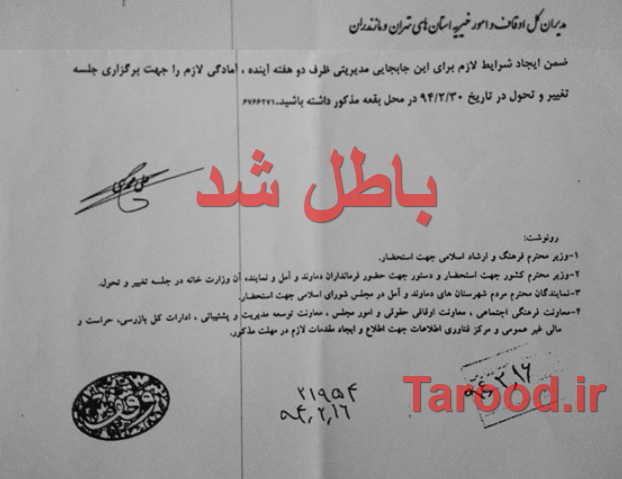 مدیران کل اوقاف و امور خیریه استان های تهران و مازندران
ضمن ایجاد شرایط لازم برای این جابجایی مدیریتی ظرف دو هفته آینده ، آمادگی لازم را جهت برگزاری جلسه
تغییر و تحول در تاریخ ۹۴/۲/۳۰ در محل بقعه مذکور داشته باشید.۶۷۶۶۲۷۱
باطل شد
رونوشت:
۱-وزیر محترم فرهنگ و ارشاد اسلامی جهت استحضار.
۲-وزیر محترم کشور جهت استحضار و دستور جهت حضور فرمانداران دماوند و آمل و نماینده آن وزارت خانه در جلسه تغییر و تحول.
۳-نمایندگان محترم مردم شهرستان های دماوند و آمل در مجلس شورای اسلامی جهت استحضار.
۴-معاونت فرهنگی اجتماعی ، معاونت اوقافی حقوقی و امور مجلس ، معاونت توسعه مدیریت و پشتیبانی ، ادارات کل بازرسی، حراست و
مالی غیر عمومی و مرکز فناوری اطلاعات جهت اطلاع و ایجاد مقدمات لازم در مهلت مذکور.
۹۴,۲,۱۶
Tarood.ir
۲۱۹۵۴
۹۴,۲,۱۶
اوقاف